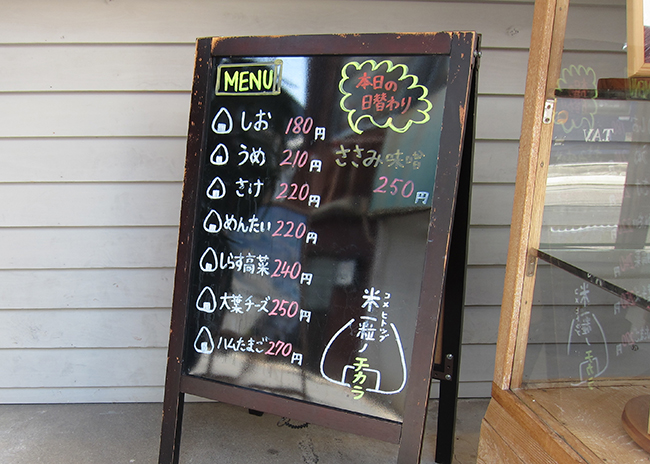 MENU
しお 180円
うめ 210円
さけ 220円
めんたい 220円
しらす高菜 240円
大葉チーズ 250円
ハムたまご 270円
本日の
日替わり
ささみ味噌
250円
コメヒトツブノ
米一粒ノ
チカラ